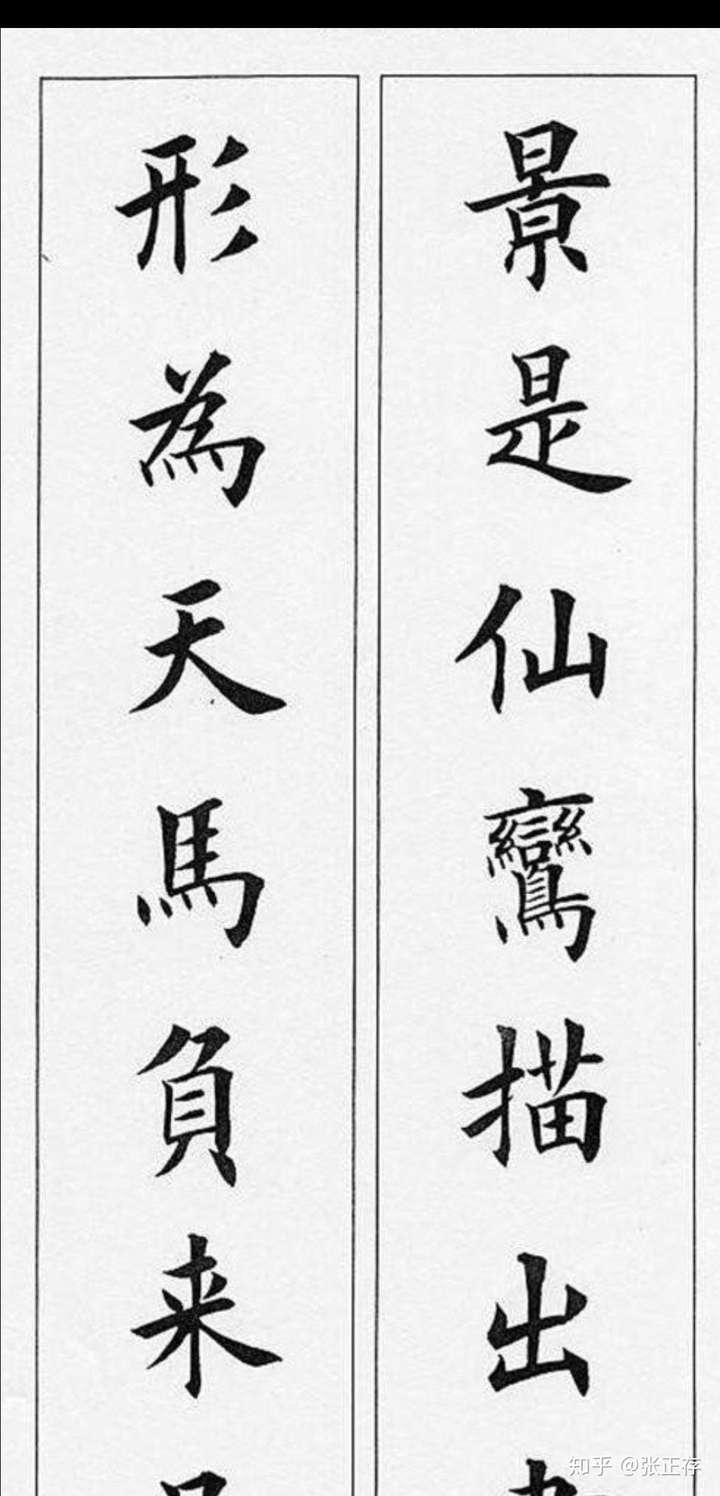 景是仙鸞描出
形為天馬負来
知乎 @张正存